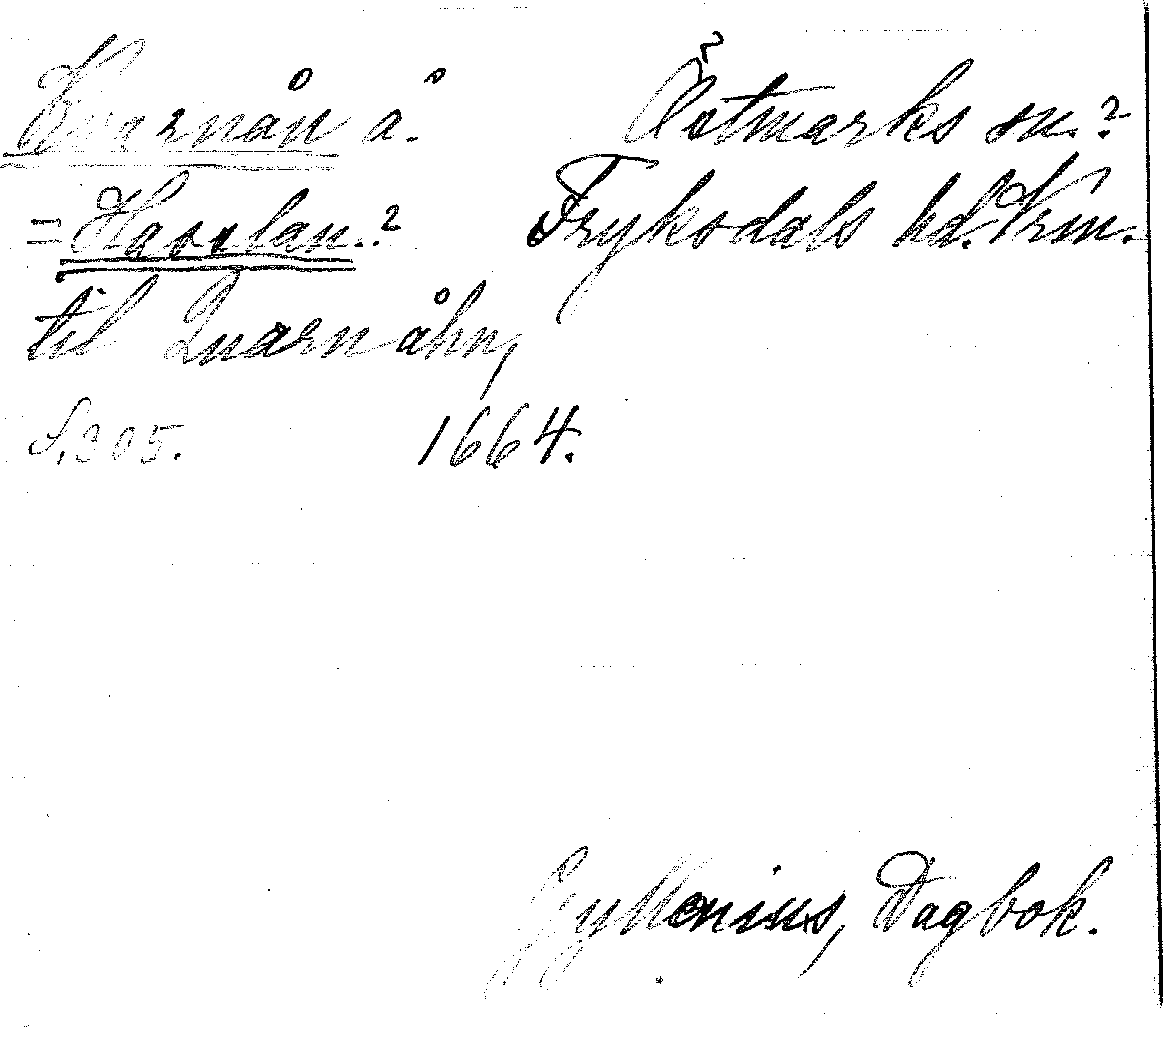 Kvarnån å. Östmarks sn.?
= Havslan.? Fryksdals hd. Vrm.
til Quarnåhn,
S. 305. 1664.
Gyllenius, Dagbok.